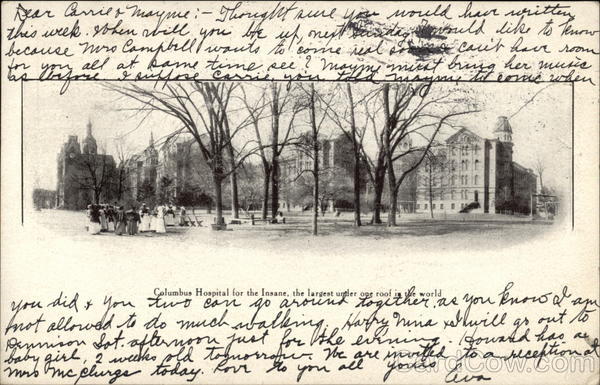 Dear Carrie & Mayme:- Thought sure you would have written
this week. When will you be up, next Sunday, I would like to know
because Mrs Campbell wants to come real & I can't have room
for you all at same time see? Mayme must bring her music
as before. I suppose Carrie, you told Mayme to come when
Columbus Hospital for the Insane, the largest under one roof in the world
you did & you two can go around together, as you know I am
not allowed to do much walking. Harry Nina & I will go out to
Dennison Sat. afternoon just for the evening. Howard has a
baby girl, 2 weeks old tomorrow. We are invited to a reception at
Mrs McClurgs today. Love to you all yours
Ava
CardCow.com